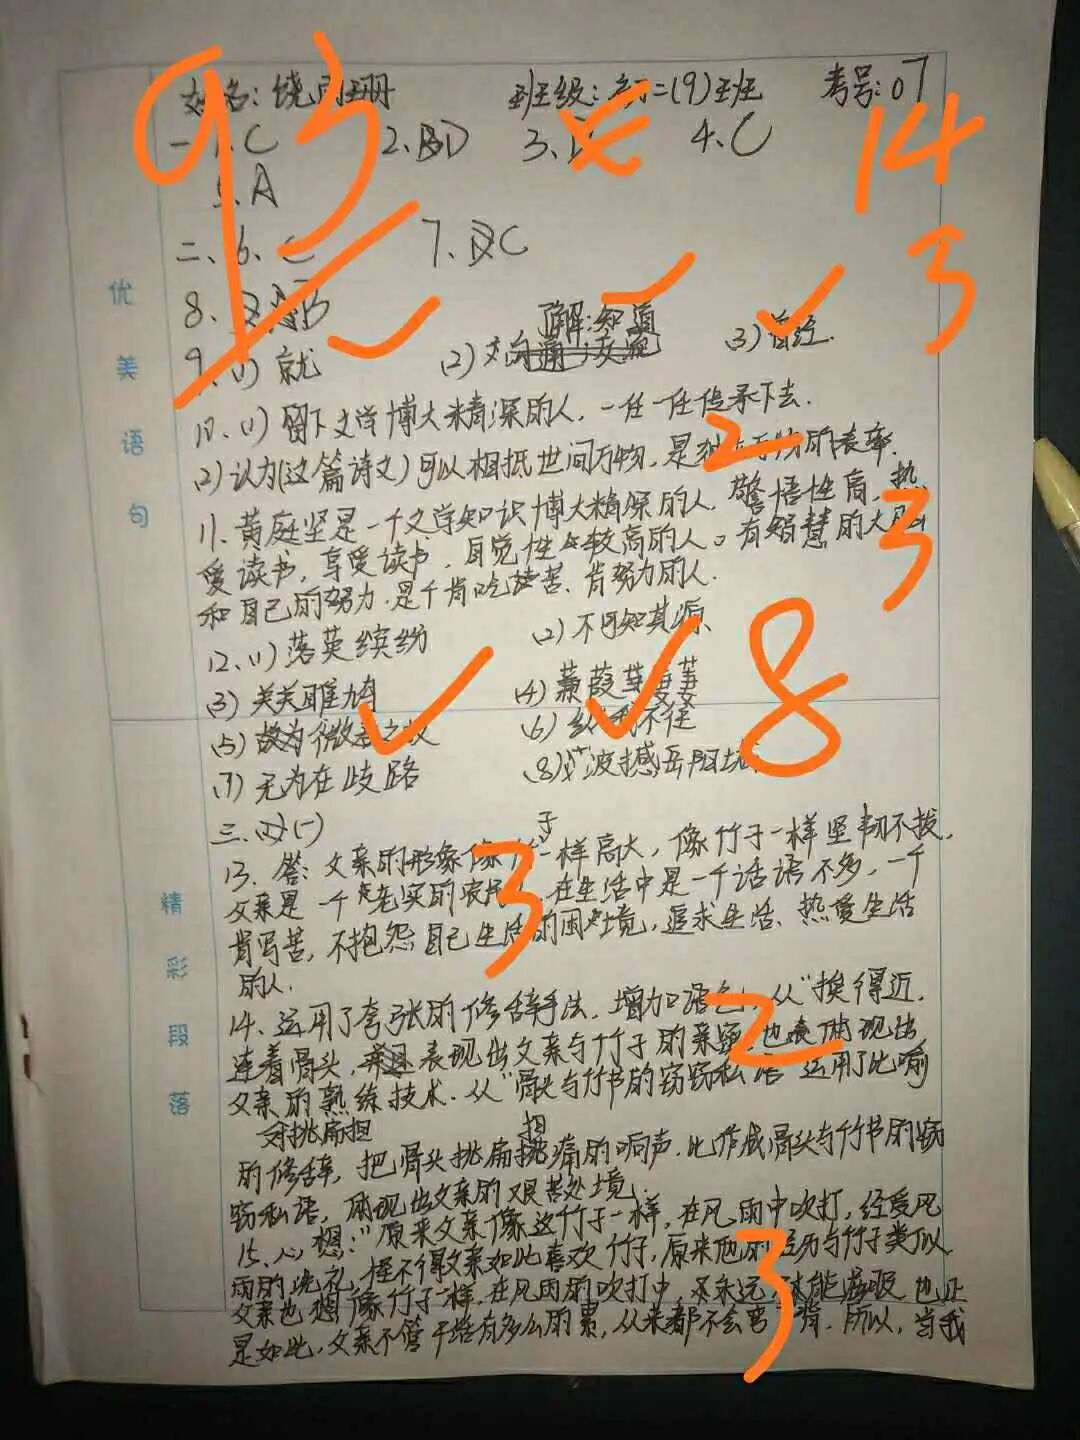 姓名:饶雨珊 班级:初二(9)班 考号:07
93
一、1、C 2、BD 3、 4、C
14
5、A
二、6、C 7、C
3
8、B
9、(1)就 (2)了解;知道 (3)曾经.
10、(1)留下文学博大精深的人,一任一任传承下去.
(2)认为(这篇诗文)可以相抵世间万物,是的表率.
2
11、黄庭坚是一个文学知识博大精深的人,警悟性高,热
爱读书,享受读书,自觉性较高的人。有智慧的大脑
3
和自己的努力.是个肯吃苦、肯努力的人.
12、(1)落英缤纷 (2)不可知其源
(3)关关雎鸠 (4)蒹葭萋萋
8
(5)微君之故 (6)不往
(7)无为在歧路 (8)波撼岳阳城
三、(一)
13、答:父亲的形象像竹子一样高大,像竹子一样坚韧不拔,
父亲是一个老实的农民,在生活中是一个话语不多,一个
3
肯写苦,不抱怨自己生活的困境,追求生活、热爱生活
的人.
14、运用了夸张的修辞手法,增加语色,从“挨得近,
2
连着骨头,表现出父亲与竹子的亲,也表现出
父亲的熟练技术.从“骨头与竹书的窃窃私语”运用了比喻
对挑扁担 担
的修辞,把骨头挑扁挑痛的响声.比作成骨头与竹书的窃
窃私语,体现出父亲的艰苦处境.
15、心想:“原来父亲像这竹子一样,在风雨中吹打,经受风
雨的洗礼,怪不得父亲如此喜欢竹子,原来他的经历与竹子类似
3
父亲也想像竹子一样.在风雨的吹打中,永远,也正
是如此,父亲不管干活有多么的累,从来都不会弯背.所以,当我
优美语句
精彩段落